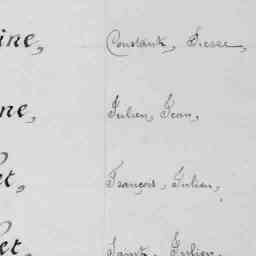 ine, Constant, Pierre,
ne, Julien, Jean,
et, François, Julien,
et, Julien